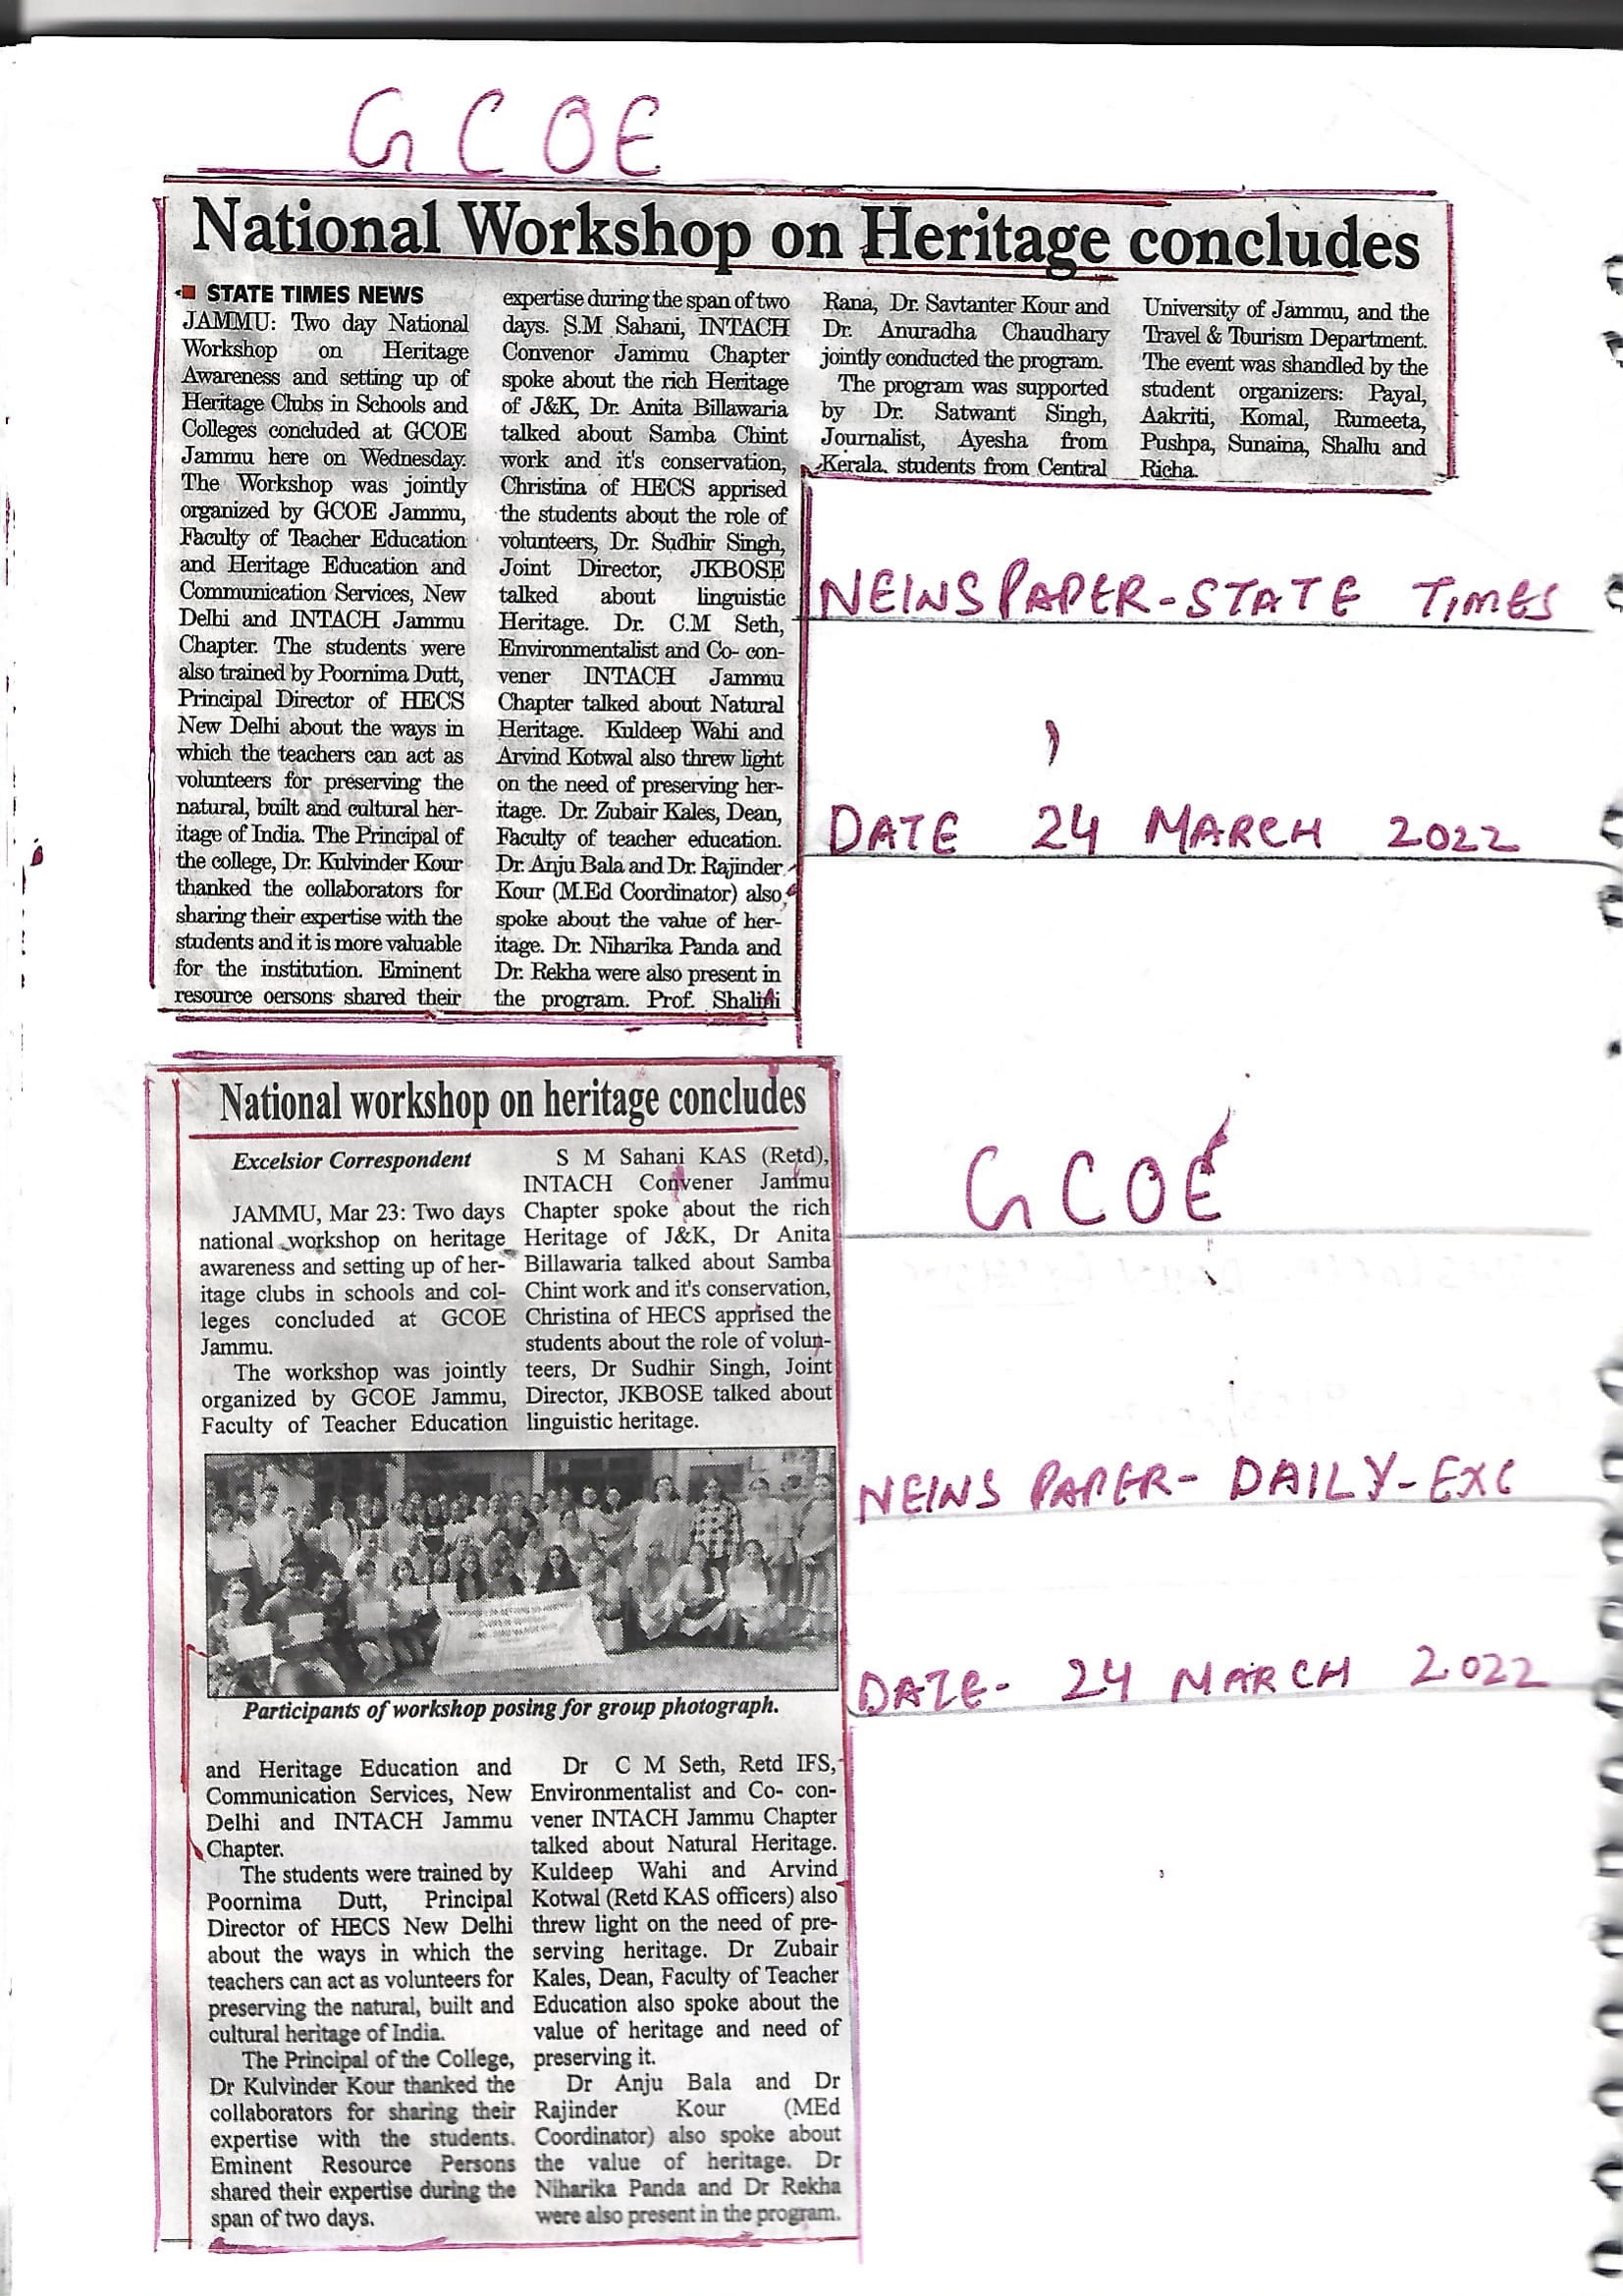 GCOE
National Workshop on Heritage concludes
STATE TIMES NEWS
JAMMU: Two day National
Workshop on Heritage
Awareness and setting up of
Heritage Clubs in Schools and
Colleges concluded at GCOE
Jammu here on Wednesday.
The Workshop was jointly
organized by GCOE Jammu,
Faculty of Teacher Education
and Heritage Education and
Communication Services, New
Delhi and INTACH Jammu
Chapter. The students were
also trained by Poornima Dutt,
Principal Director of HECS
New Delhi about the ways in
which the teachers can act as
volunteers for preserving the
natural, built and cultural her-
itage of India. The Principal of
the college, Dr. Kulvinder Kour
thanked the collaborators for
sharing their expertise with the
students and it is more valuable
for the institution. Eminent
resource oersons shared their
expertise during the span of two
days. S.M Sahani, INTACH
Convenor Jammu Chapter
spoke about the rich Heritage
of J&K, Dr. Anita Billawaria
talked about Samba Chint
work and it's conservation,
Christina of HECS apprised
the students about the role of
volunteers, Dr. Sudhir Singh,
Joint Director, JKBOSE
talked about linguistic
Heritage. Dr. C.M Seth,
Environmentalist and Co- con-
vener INTACH Jammu
Chapter talked about Natural
Heritage. Kuldeep Wahi and
Arvind Kotwal also threw light
on the need of preserving her-
itage. Dr. Zubair Kales, Dean,
Faculty of teacher education.
Dr. Anju Bala and Dr. Rajinder
Kour (M.Ed Coordinator) also
spoke about the value of her-
itage. Dr. Niharika Panda and
Dr. Rekha were also present in
the program. Prof. Shalini
Rana, Dr. Savtanter Kour and
Dr. Anuradha Chaudhary
jointly conducted the program.
The program was supported
by Dr. Satwant Singh,
Journalist, Ayesha from
Kerala, students from Central
University of Jammu, and the
Travel & Tourism Department.
The event was shandled by the
student organizers: Payal,
Aakriti, Komal, Rumeeta,
Pushpa, Sunaina, Shallu and
Richa.
NEWS PAPER-STATE TIMES
DATE 24 MARCH 2022
National workshop on heritage concludes
Excelsior Correspondent
JAMMU, Mar 23: Two days
national workshop on heritage
awareness and setting up of her-
itage clubs in schools and col-
leges concluded at GCOE
Jammu.
The workshop was jointly
organized by GCOE Jammu,
Faculty of Teacher Education
S M Sahani KAS (Retd),
INTACH Convener Jammu
Chapter spoke about the rich
Heritage of J&K, Dr Anita
Billawaria talked about Samba
Chint work and it's conservation,
Christina of HECS apprised the
students about the role of volun-
teers, Dr Sudhir Singh, Joint
Director, JKBOSE talked about
linguistic heritage.
Participants of workshop posing for group photograph.
and Heritage Education and
Communication Services, New
Delhi and INTACH Jammu
Chapter.
The students were trained by
Poornima Dutt, Principal
Director of HECS New Delhi
about the ways in which the
teachers can act as volunteers for
preserving the natural, built and
cultural heritage of India.
The Principal of the College,
Dr Kulvinder Kour thanked the
collaborators for sharing their
expertise with the students.
Eminent Resource Persons
shared their expertise during the
span of two days.
Dr C M Seth, Retd IFS,
Environmentalist and Co- con-
vener INTACH Jammu Chapter
talked about Natural Heritage.
Kuldeep Wahi and Arvind
Kotwal (Retd KAS officers) also
threw light on the need of pre-
serving heritage. Dr Zubair
Kales, Dean, Faculty of Teacher
Education also spoke about the
value of heritage and need of
preserving it.
Dr Anju Bala and Dr
Rajinder Kour (MEd
Coordinator) also spoke about
the value of heritage. Dr
Niharika Panda and Dr Rekha
were also present in the program.
GCOE
NEWS PAPER- DAILY-EXC
DATE- 24 MARCH 2022